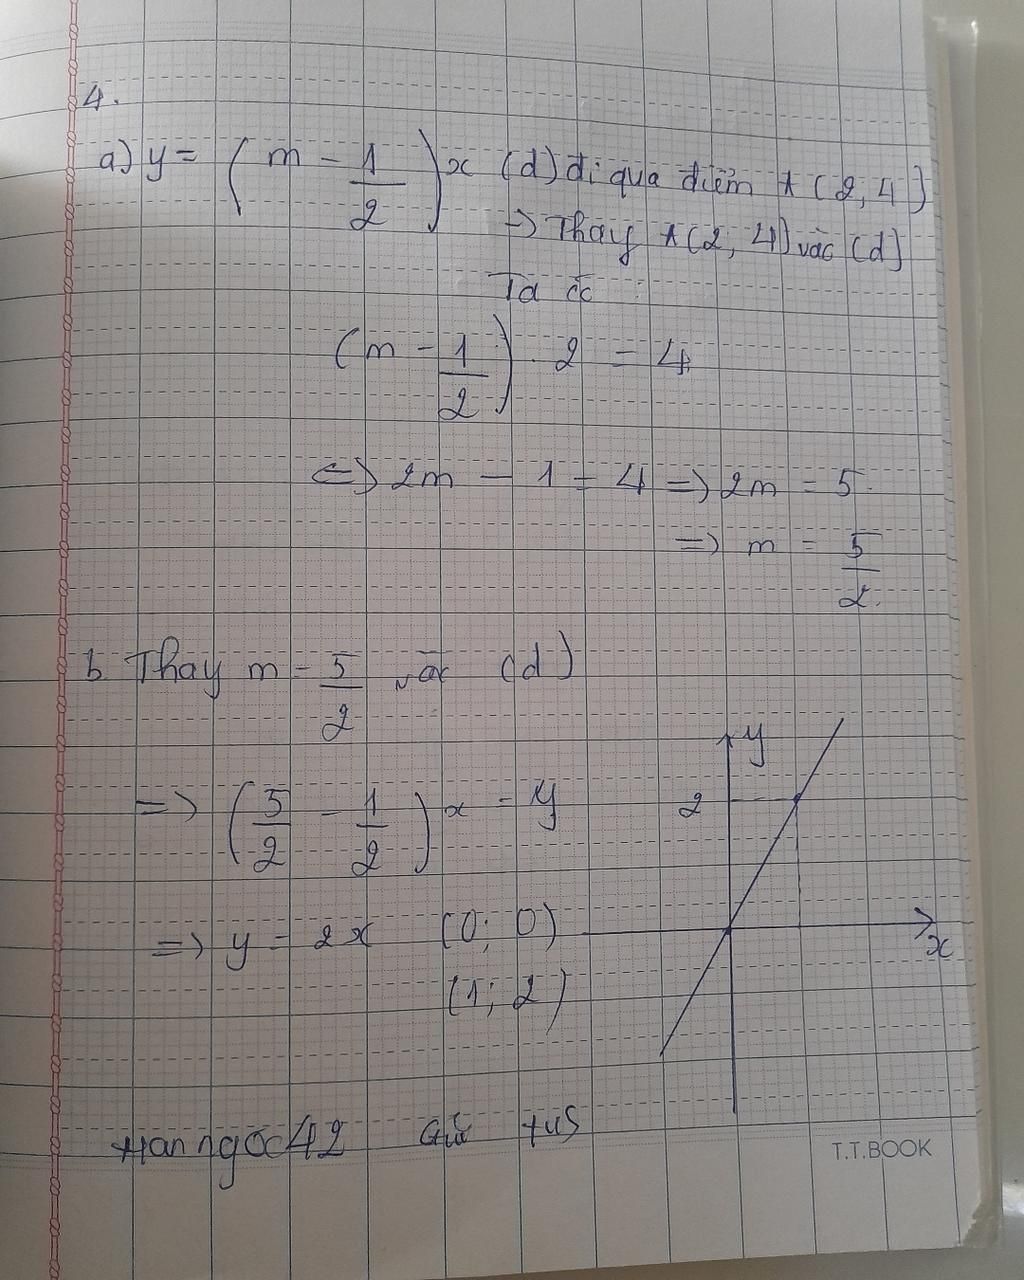 4.
a) y = (m - 1/2)x (d) đi qua điểm A(2, 4)
=> Thay A(2, 4) vào (d)
Ta có :
(m - 1/2) . 2 = 4
<=> 2m - 1 = 4 => 2m = 5
=> m = 5/2.
b. Thay m = 5/2 vào (d)
=> (5/2 - 1/2)x = y
=> y = 2x (0; 0)
(1; 2)
y
2
x
Hanngoc42 Gửi tus
T.T.BOOK